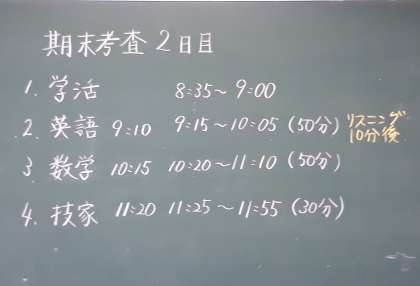 期末考査2日目
1. 学活 8:35～9:00
2. 英語 9:10 9:15～10:05 (50分) リスニング
10分後
3 数学 10:15 10:20～11:10 (50分)
4. 技家 11:20 11:25～11:55 (30分)